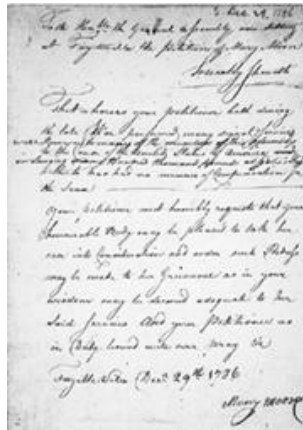 Dec 29, 1786
To the Honble the General Assembly now sitting
at Fayetteville the Petition of Mary Moore
Humbly Sheweth
That whereas your petitioner hath during
the late War performed many signal services
to the cause of the United States of America and
Hundred thousand
which has had no manner of Compensation for
the same
Your petitioner most humbly requests that your
honourable Body may be pleased to take her
case into Consideration and order such Redress
may be made to her Grievance as in your
wisdom may be deemed adequate to her
said services And your Petitioner as
in Duty bound will ever pray &c
Fayetteville Decr 29th 1786
Mary Moore